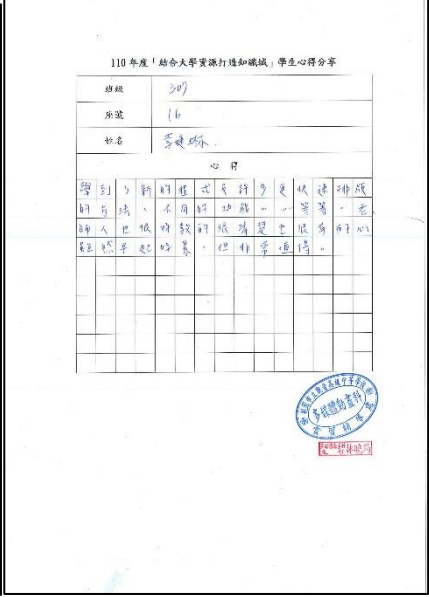 110 年度「結合大學資源打造知識城」學生心得分享
班級 307
座號 16
姓名 李
心 得
學到了新的程式與許多更快速排版
的方法、不同的功能……等等。老
師人也很好教的很清楚也很有耐心
雖然早起好累，但非常值得。
多媒體動畫科